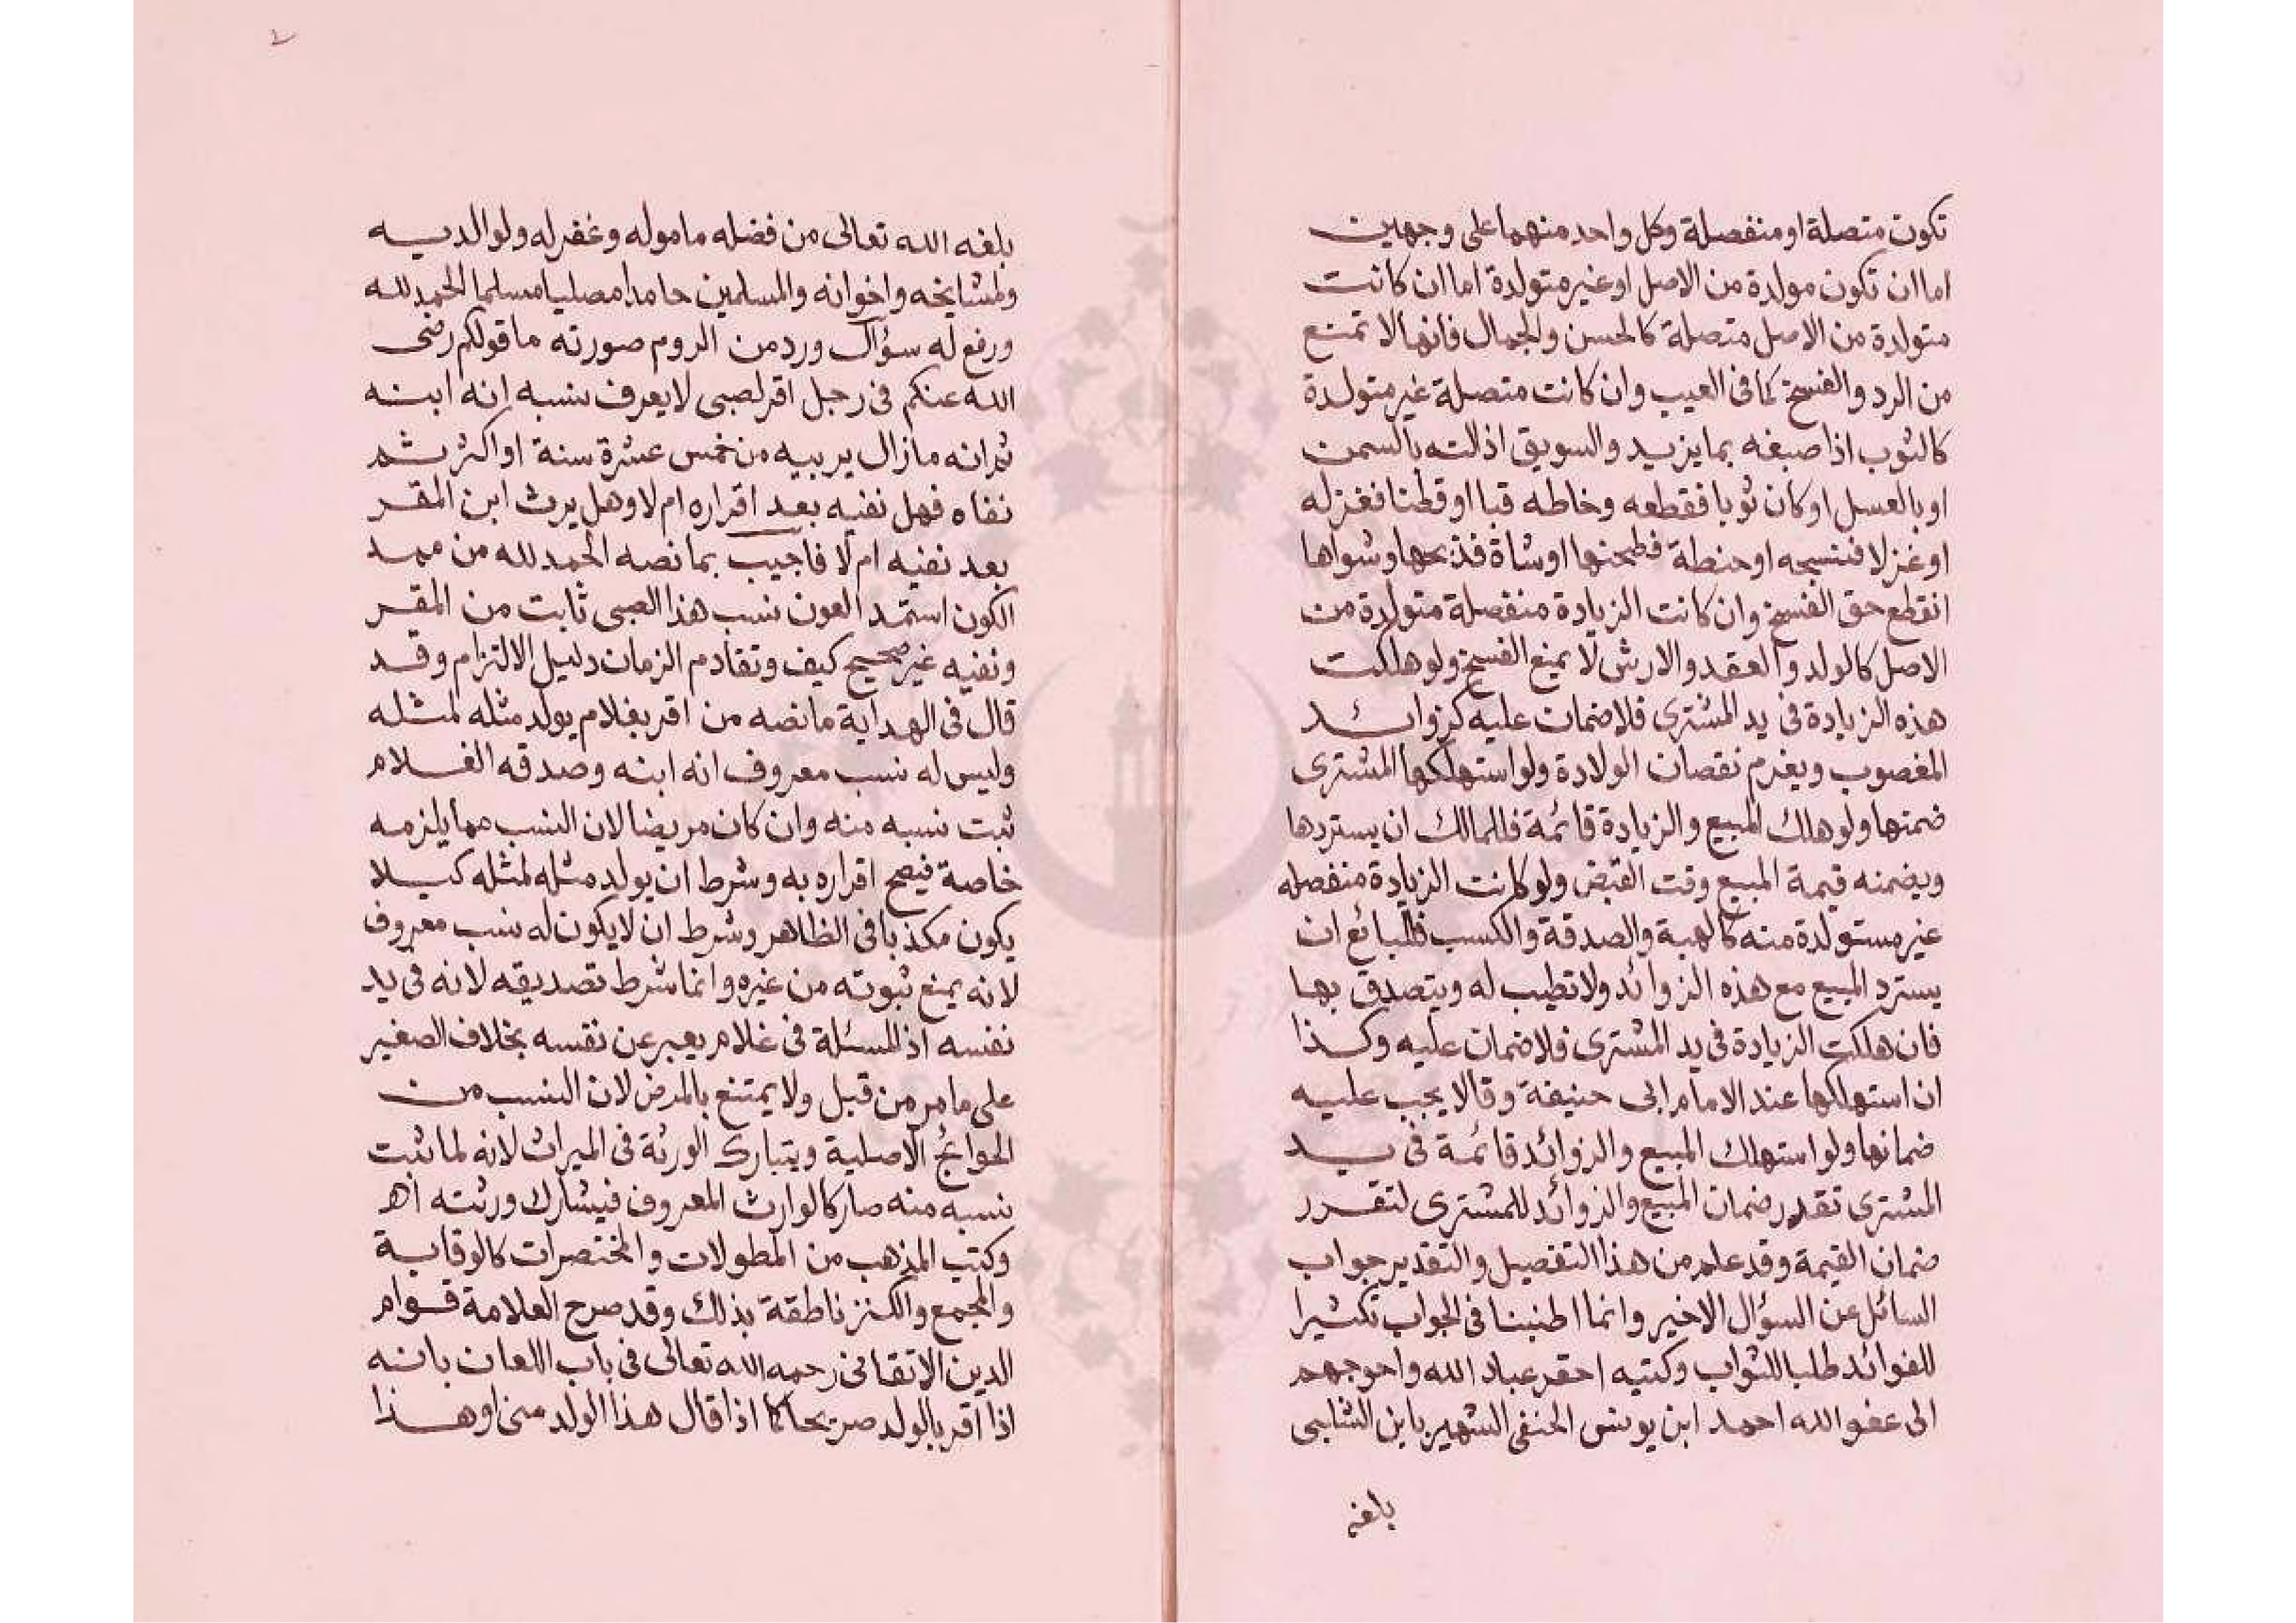 تكون متصلة او منفصلة وكل واحد منهما على وجهين
اما ان تكون مولدة من الاصل او غير متولدة اما ان كانت
متولدة من الاصل متصلة كالحسن والجمال فانها لا تمنع
من الرد والفسخ كما فى العيب وان كانت متصلة غير متولدة
كالثوب اذا صبغه بما يزيد والسويق اذا لته بالسمن
او بالعسل او كان ثوبا فقطعه وخاطه قبا او قطنا فغزله
او غزلا فنسجه او حنطة فطحنها او شاة فذبحها وشواها
انقطع حق الفسخ وان كانت الزيادة منفصلة متولدة من
الاصل كالولد والعقد والارش لا يمنع الفسخ ولو هلكت
هذه الزيادة فى يد المشترى فلا ضمان عليه كزوائد
المغصوب ويغرم نقصان الولادة ولو استهلكها المشترى
ضمنها ولو هلك المبيع والزيادة قائمة فللمالك ان يستردها
ويضمنه قيمة المبيع وقت القبض ولو كانت الزيادة منفصله
غير مستولدة منه كالهبة والصدقة والكسب فللبائع ان
يسترد المبيع مع هذه الزوائد ولا تطيب له ويتصدق بها
فان هلكت الزيادة فى يد المشترى فلا ضمان عليه وكذا
ان استهلكها عند الامام ابى حنيفة وقالا يجب عليه
ضمانها ولو استهلك المبيع والزوائد قائمة فى يد
المشترى تقدر ضمان المبيع والزوائد للمشترى لتقرر
ضمان القيمة وقد علم من هذا التفصيل والتقدير جواب
السائل عن السؤال الاخير وانما اطنبنا فى الجواب تكثيرا
للفوائد طلبا للثواب وكتبه احقر عباد الله واحوجهم
الى عفو الله احمد ابن يونس الحنفى الشهير بابن الشلبى
بلغه
بلغه الله تعالى من فضله ماموله وغفر له ولوالديه
ولمشايخه واخوانه والمسلمين حامدا مصليا مسلما الحمد لله
ورفع له سؤال ورد من الروم صورته ما قولكم رضى
الله عنكم فى رجل اقر لصبى لا يعرف نسبه انه ابنه
ثم انه ما زال يربيه من خمس عشرة سنة او اكثر ثم
نفاه فهل نفيه بعد اقراره ام لا وهل يرث ابن المقر
بعد نفيه ام لا فاجيب بما نصه الحمد لله من ممد
الكون استمد العون نسب هذا الصبى ثابت من المقر
ونفيه غير صحيح كيف وتقادم الزمان دليل الالتزام وقد
قال فى الهداية ما نصه من اقر بغلام يولد مثله لمثله
وليس له نسب معروف انه ابنه وصدقه الغلام
ثبت نسبه منه وان كان مريضا لان النسب مما يلزمه
خاصة فيصح اقراره به وشرط ان يولد مثله لمثله كيلا
يكون مكذبا فى الظاهر وشرط ان لا يكون له نسب معروف
لانه يمنع ثبوته من غيره وانما شرط تصديقه لانه فى يد
نفسه اذ المسئلة فى غلام يعبر عن نفسه بخلاف الصغير
على ما مر من قبل ولا يمتنع بالمرض لان النسب من
الحوائج الاصلية ويتبارك الورثة فى الميراث لانه لما ثبت
نسبه منه صار كالوارث المعروف فيشارك ورثته اهـ
وكتب المذهب من المطولات والمختصرات كالوقاية
والمجمع والكنز ناطقة بذلك وقد صرح العلامة قوام
الدين الاتقانى رحمه الله تعالى فى باب اللعان بانه
اذا اقر بالولد صريحا كما اذا قال هذا الولد منى او هذا